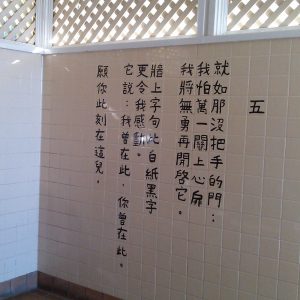 五
就如那沒把手的門：
我怕萬一關上心扉
我將無勇再開啓它。
牆上字句比白紙黑字
更令我感動。
它說：我曾在此．你曾在此。
願你此刻在這兒。